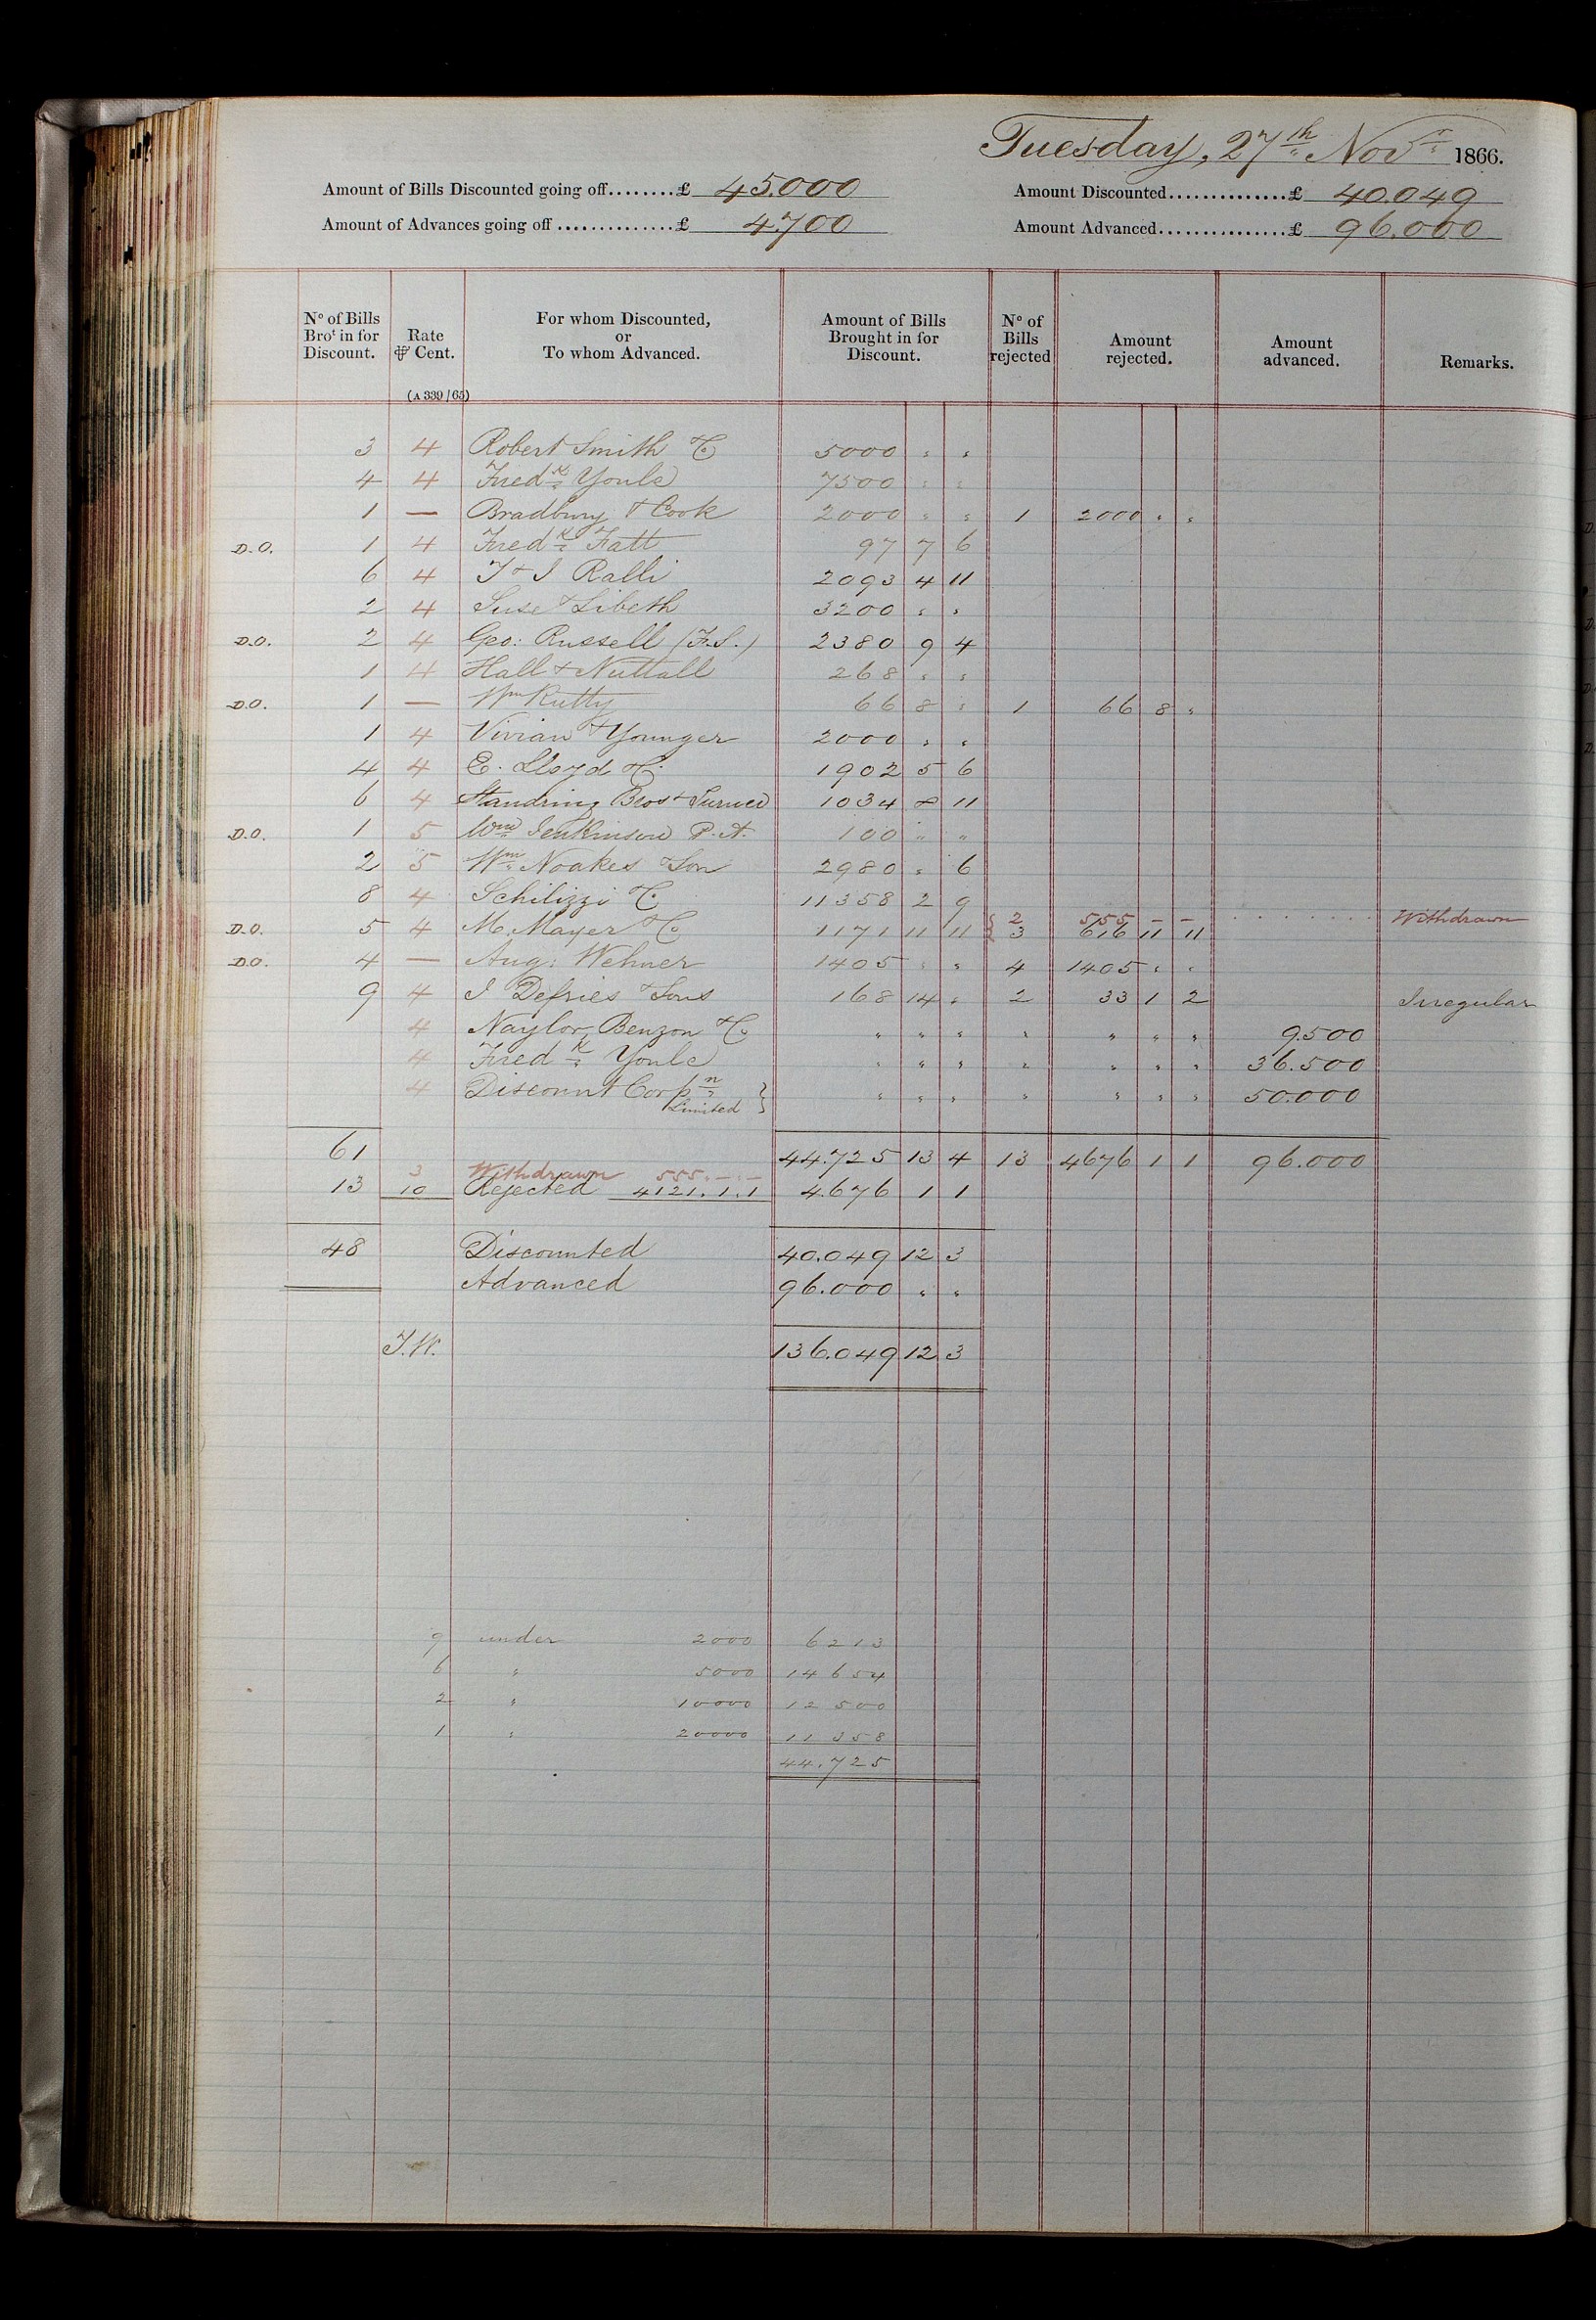 Tuesday, 27th Novr 1866.
Amount of Bills Discounted going off........£ 45.000
Amount Discounted...............£ 40.049
Amount of Advances going off ...............£ 4.700
Amount Advanced................£ 96.000
No of Bills Brot in for Discount.
Rate ⅌ Cent.
For whom Discounted, or To whom Advanced.
Amount of Bills Brought in for Discount.
No of Bills rejected
Amount rejected.
Amount advanced.
Remarks.
(A 339/65)
3 4 Robert Smith & Co 5000 " "
4 4 Fredk Youle 7500 " "
1 — Bradbury & Cook 2000 " " 1 2000 " "
D.O. 1 4 Fredk Fatt 97 7 6
6 4 T & I Ralli 2093 4 11
2 4 Suse & Sibeth 3200 " "
D.O. 2 4 Geo: Russell (F.S.) 2380 9 4
1 4 Hall & Nuttall 268 " "
D.O. 1 — Wm Rutty 66 8 " 1 66 8 "
1 4 Vivian & Younger 2000 " "
4 4 E. Lloyd & Co 1902 5 6
6 4 Standring Bros & 1034 8 11
D.O. 1 5 Wm Jenkinson P.A. 100 " "
2 5 Wm Noakes & Son 2980 " 6
8 4 Schilizzi & Co 11358 2 9
D.O. 5 4 M. Mayer & Co 1171 11 11 { 2 555 - - Withdrawn
3 616 11 11
D.O. 4 — Aug: Wehner 1405 " " 4 1405 " "
9 4 J Defries & Sons 168 14 " 2 33 1 2 Irregular
4 Naylor, Benzon & Co " " " " " " " 9.500
4 Fredk Youle " " " " " " " 36.500
4 Discount Corpn Limited } " " " " " " " 50.000
61 44.725 13 4 13 4676 1 1 96.000
3 Withdrawn 555.-.-
13 10 Rejected 4121.1.1 4.676 1 1
48 Discounted 40.049 12 3
Advanced 96.000 " "
J.W. 136.049 12 3
9 under 2000 6213
6 " 5000 14654
2 " 10000 12500
1 " 20000 11358
44.725